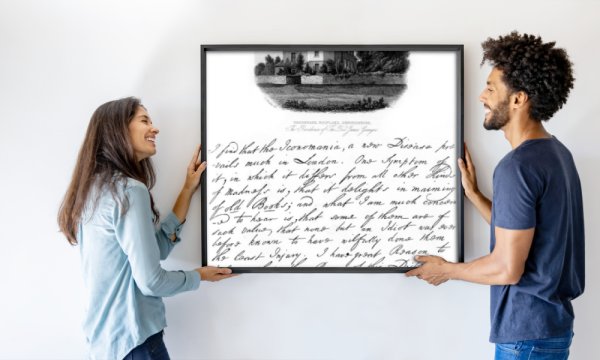 VICARAGE, SHIPLAKE, OXFORDSHIRE.
The Residence of The Revd. James Granger
I find that the Iconomania, a new Disease pre
vails much in London. One Symptom of
it, in which it differs from all other Kinds
of Madness is, that it delights in maiming
of old Books; and what I am much concern
ed to hear is, that some of them are of
such value, that none but an Idiot was ever
before known to have wilfully done them
the least Injury. I have great Reason to